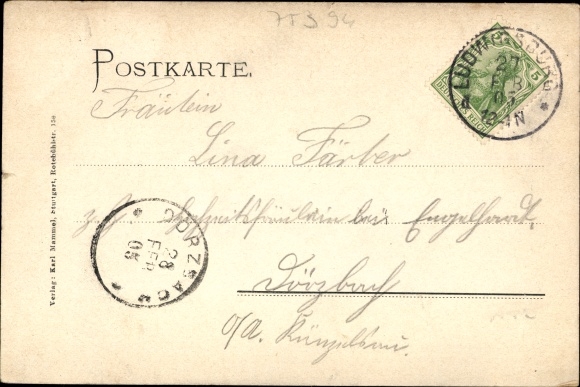 7TS 94
POSTKARTE.
LUDWIGSBURG
27
FEB
05
5
Fräulein
Lina Färber
z. Z. bei Engelhardt,
Dörzbach
O/A. Künzelsau.
DÖRZBACH
28
FEB
05
Verlag: Karl Mammel, Stuttgart, Rotebühlstr. 120